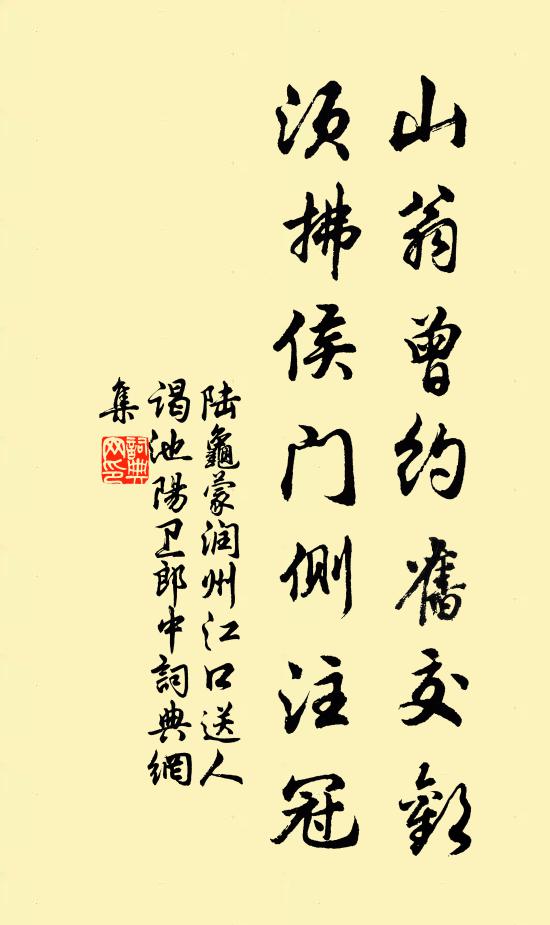 山翁曾约舊交歡
须拂侯门侧注冠
陆龜蒙润州江口送人
谒池陽卫郎中詞典網
集
詞典網印